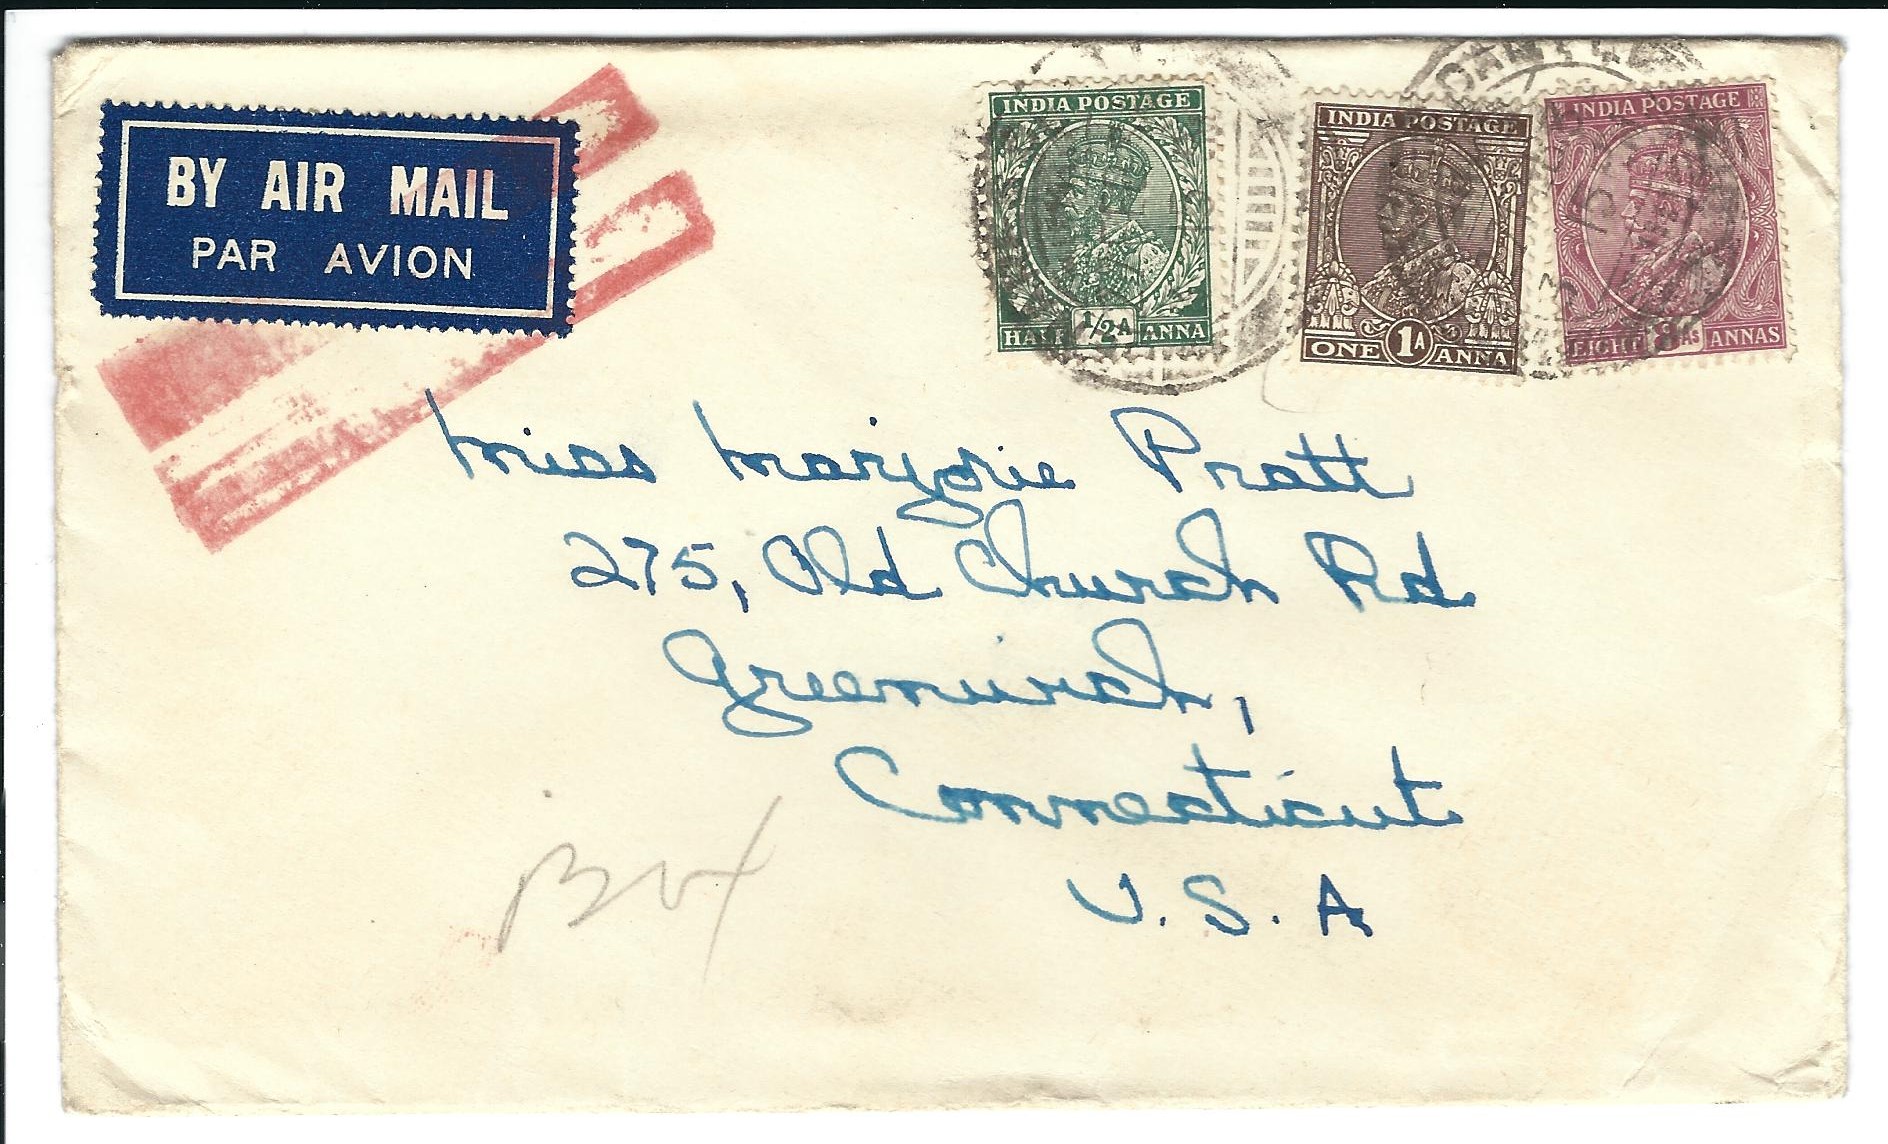 BY AIR MAIL
PAR AVION
INDIA POSTAGE
HALF 1/2A ANNA
INDIA POSTAGE
ONE 1A ANNA
INDIA POSTAGE
EIGHT 8As ANNAS
Miss Marjorie Pratt
275, Old Church Rd
Greenwich,
Connecticut
U.S.A